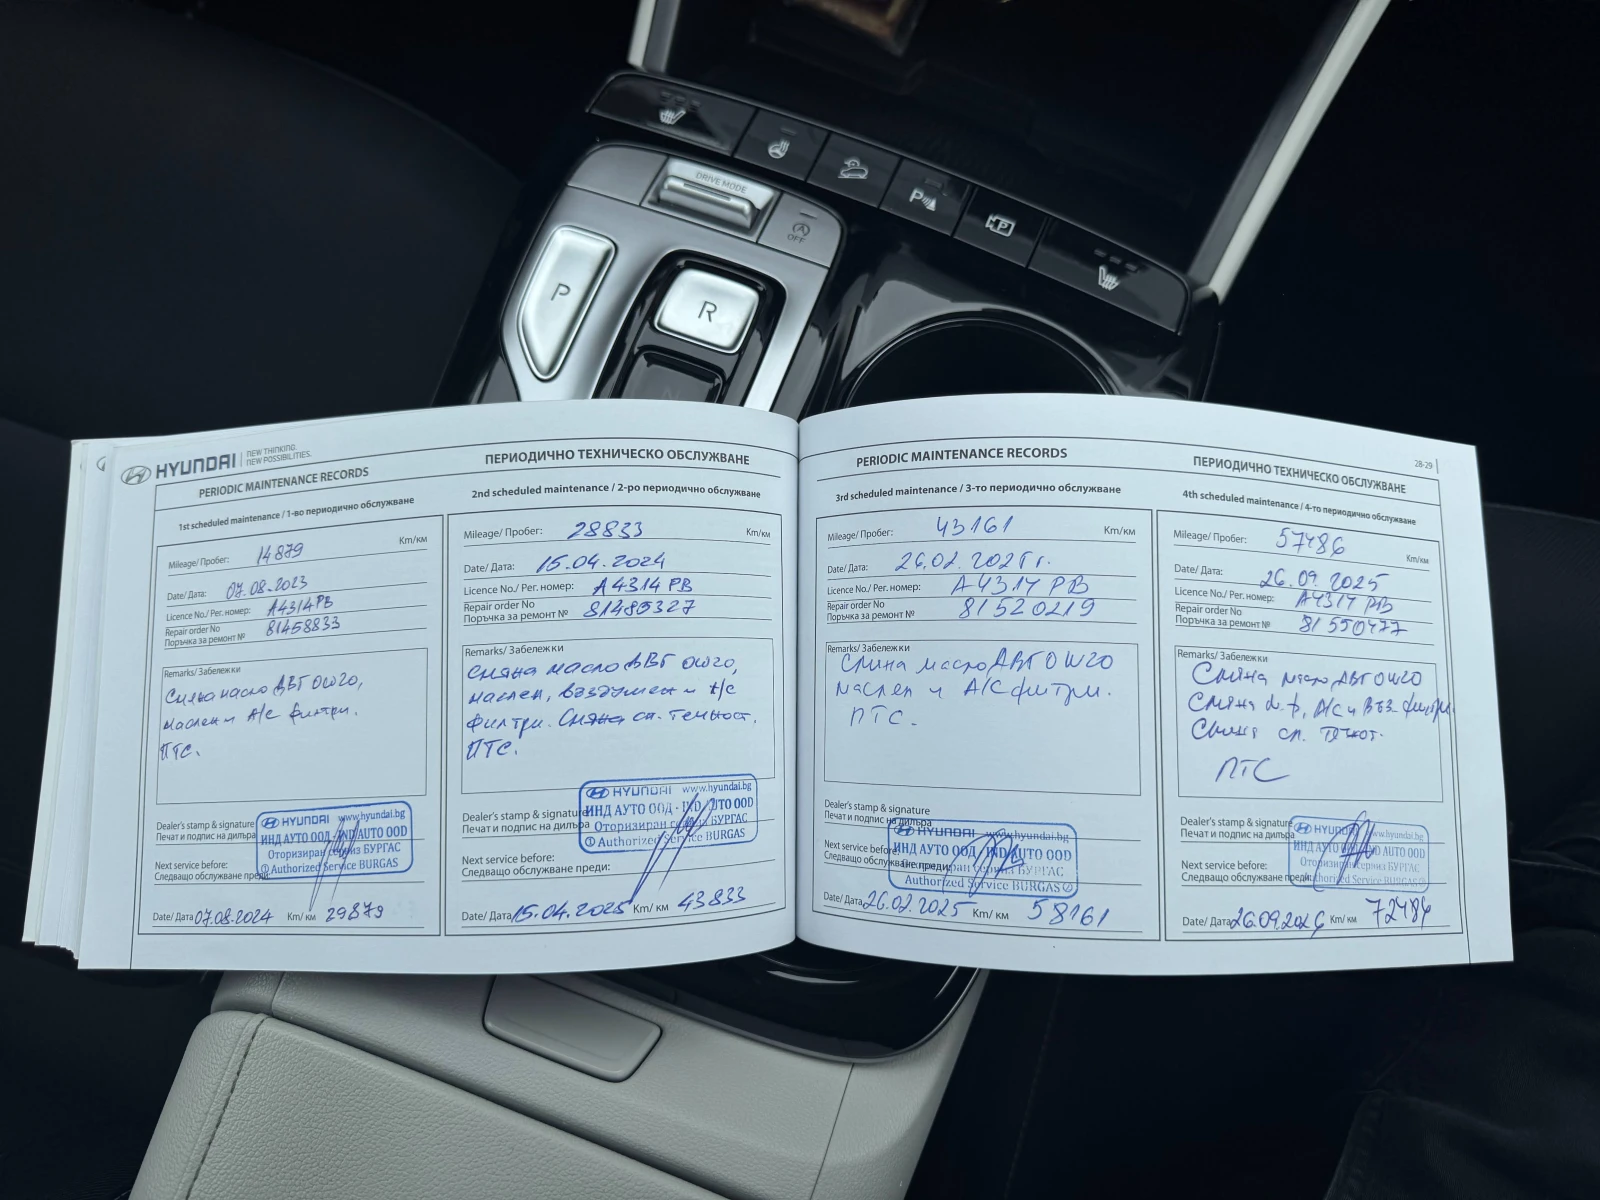 DRIVE MODE
A
OFF
P
P
P
R
N
HYUNDAI | NEW THINKING.
NEW POSSIBILITIES.
PERIODIC MAINTENANCE RECORDS
ПЕРИОДИЧНО ТЕХНИЧЕСКО ОБСЛУЖВАНЕ
1st scheduled maintenance / 1-во периодично обслужване
Mileage/ Пробег: 14879 Km/км
Date/ Дата: 07.08.2023
Licence No./ Рег. номер: A4314PB
Repair order No
Поръчка за ремонт № 81458833
Remarks/ Забележки
Смяна масло ДВГ 0W20,
маслен и A/C филтри.
ПТС.
Dealer's stamp & signature
Печат и подпис на дилъра
HYUNDAI www.hyundai.bg
ИНД АУТО ООД - IND AUTO OOD
Оторизиран сервиз БУРГАС
① Authorized Service BURGAS
Next service before:
Следващо обслужване преди:
Date/ Дата 07.08.2024 Km/ км 29879
2nd scheduled maintenance / 2-ро периодично обслужване
Mileage/ Пробег: 28833 Km/км
Date/ Дата: 15.04.2024
Licence No./ Рег. номер: A4314PB
Repair order No
Поръчка за ремонт № 81485327
Remarks/ Забележки
Смяна масло ДВГ 0W20,
маслен, въздушен и A/C
филтри. Смяна сп. течност.
ПТС.
Dealer's stamp & signature
Печат и подпис на дилъра
HYUNDAI www.hyundai.bg
ИНД АУТО ООД - IND AUTO OOD
Оторизиран сервиз БУРГАС
① Authorized Service BURGAS
Next service before:
Следващо обслужване преди:
Date/ Дата 15.04.2025 Km/ км 43833
PERIODIC MAINTENANCE RECORDS
ПЕРИОДИЧНО ТЕХНИЧЕСКО ОБСЛУЖВАНЕ
28-29
3rd scheduled maintenance / 3-то периодично обслужване
Mileage/ Пробег: 43161 Km/км
Date/ Дата: 26.02.2025г.
Licence No./ Рег. номер: A4314PB
Repair order No
Поръчка за ремонт № 81520219
Remarks/ Забележки
Смяна масло ДВГ 0W20
маслен и A/C филтри.
ПТС.
Dealer's stamp & signature
Печат и подпис на дилъра
HYUNDAI www.hyundai.bg
ИНД АУТО ООД - IND AUTO OOD
Оторизиран сервиз БУРГАС
Authorized Service BURGAS ②
Next service before:
Следващо обслужване преди:
Date/ Дата 26.02.2025 Km/ км 58161
4th scheduled maintenance / 4-то периодично обслужване
Mileage/ Пробег: 57486 Km/км
Date/ Дата: 26.09.2025
Licence No./ Рег. номер: A4314PB
Repair order No
Поръчка за ремонт № 81550477
Remarks/ Забележки
Смяна масло ДВГ 0W20
Смяна м.ф, A/C и въз. филтри.
Смяна сп. течност.
ПТС
Dealer's stamp & signature
Печат и подпис на дилъра
HYUNDAI www.hyundai.bg
ИНД АУТО ООД - IND AUTO OOD
Оторизиран сервиз БУРГАС
Authorized Service BURGAS ②
Next service before:
Следващо обслужване преди:
Date/ Дата 26.09.2026 Km/ км 72486